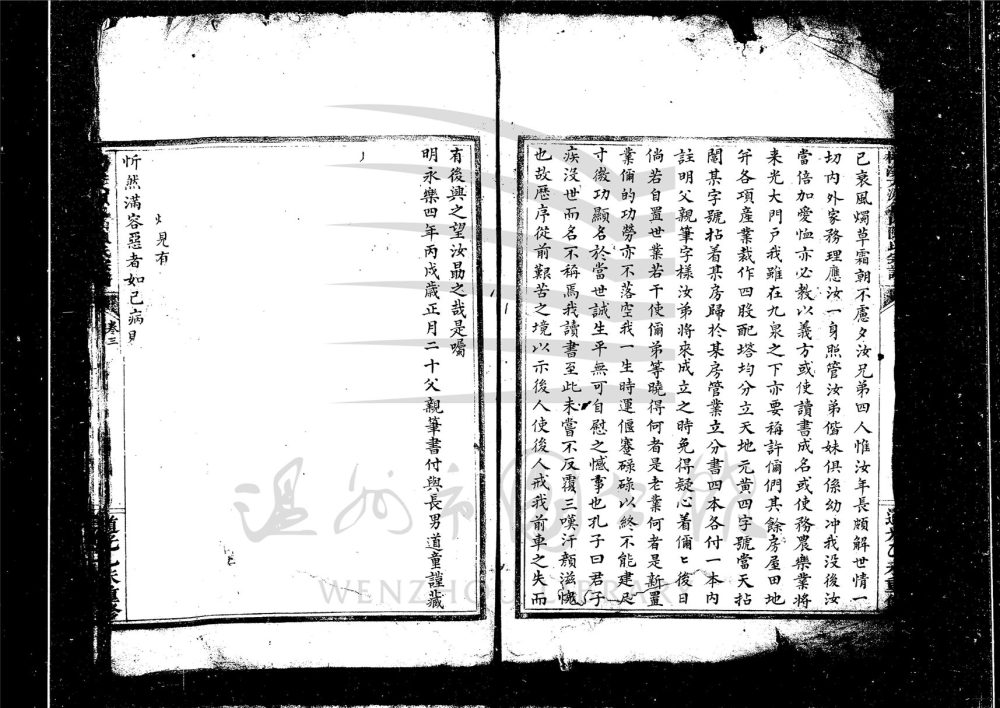 已衰風燭草霜朝不慮夕汝兄弟四人惟汝年長頗解世情一
切內外家務理應汝一身照管汝弟偕妹俱係幼冲我沒後汝
當倍加愛恤亦必教以義方或使讀書成名或使務農樂業將
来光大門戸我雖在九泉之下亦要稱許儞們其餘房屋田地
并各項產業裁作四股配塔均分立天地元黄四字號當天拈
鬮某字號拈着某房歸於某房管業立分書四本各付一本内
註明父親筆字樣汝弟將來成立之時免得疑心着儞々後日
倘若自置世業若干使儞弟等曉得何者是老業何者是新置
業儞的功勞亦不落空我一生時運偃蹇碌碌以終不能建尺
寸微功顯名於當世誠生平無可自慰之憾事也孔子曰君子
疾沒世而名不稱焉我讀書至此未嘗不反覆三嘆汗顏滋愧
也故歷序從前艱苦之境以示後人使後人戒我前車之失而
有後興之望汝勗之哉是囑
明永樂四年丙戌歲正月二十父親筆書付與長男道童謹藏
見有
忻然滿容惡者如己病見
卷三
道光乙未重修
溫州市圖書館
WENZHOU LIBRARY